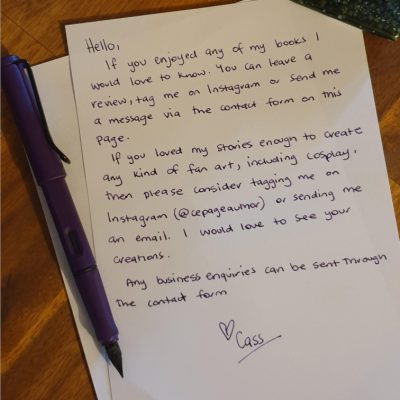 Hello,
If you enjoyed any of my books I
would love to know. You can leave a
review, tag me on Instagram or send me
a message via the contact form on this
page.
If you loved my stories enough to create
any kind of fan art, including cosplay,
then please consider tagging me on
Instagram (@cepageauthor) or sending me
an email. I would love to see your
creations.
Any business enquiries can be sent through
the contact form
♡ Cass